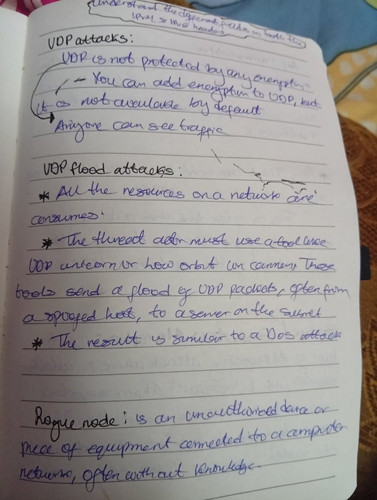 Understand the different fields in both the
IPv4 & IPv6 header
UDP attacks:
UDP is not protected by any encryption
- You can add encryption to UDP, but
it is not available by default
Anyone can see traffic
UDP flood attacks:
* All the resources on a network are
consumes.
* The thread actor must use a tool like
UDP unicorn or low orbit ion cannon, These
tools send a flood of UDP packets, often from
a spoofed host, to a server on the subnet
* The result is similar to a Dos attack
Rogue node: is an unauthorised device or
piece of equipment connected to a computer
network, often without knowledge.